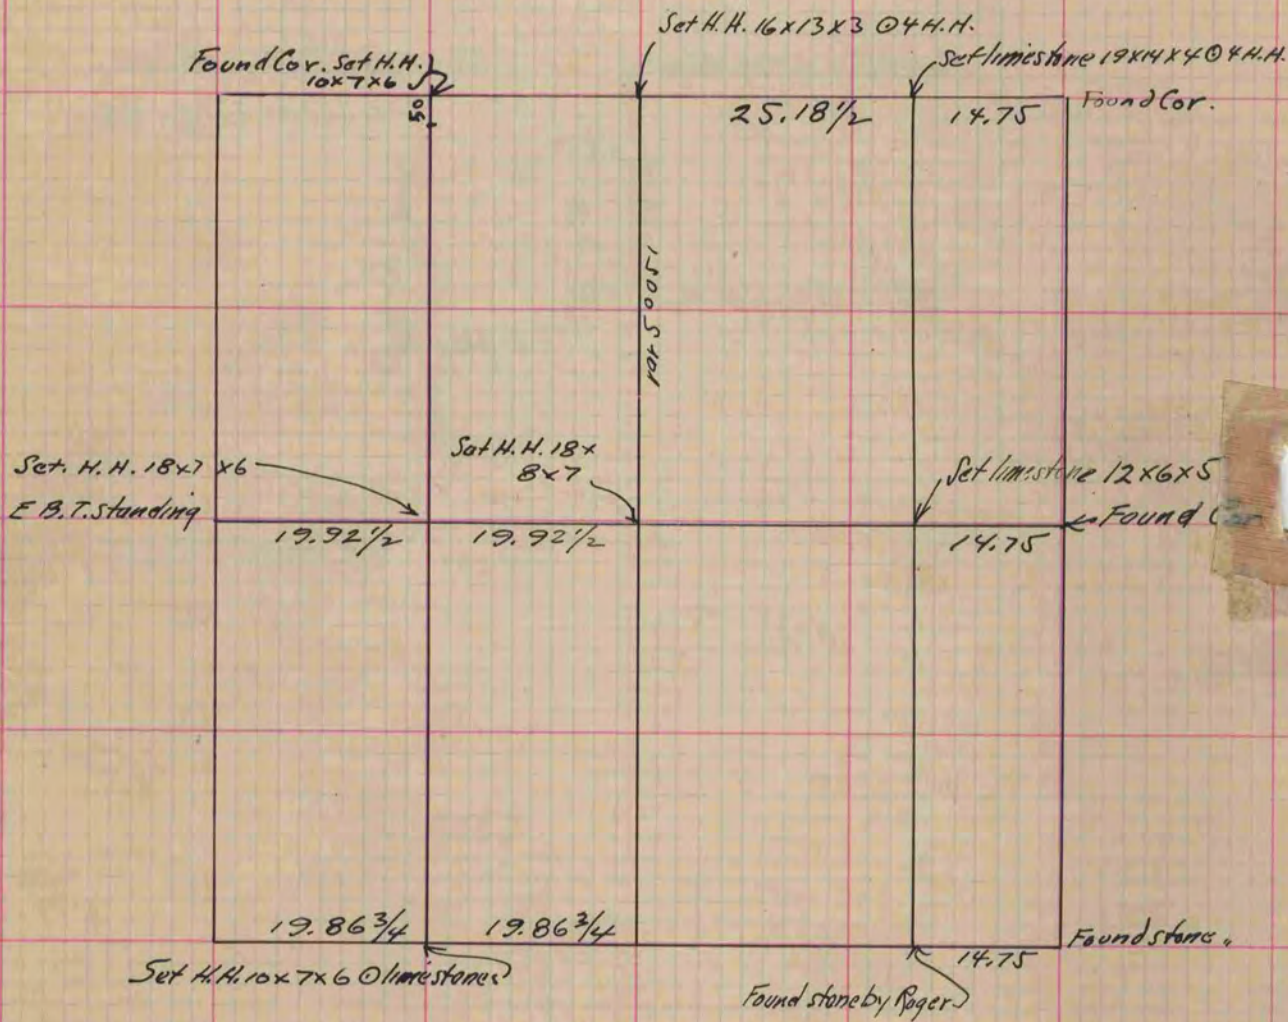 Set H.H. 16x13x3 ⊙ 4 H.H.
Found Cor. Set H.H.
10x7x6
Set limestone 19x14x4 ⊙ 4 H.H.
50
25.18½
14.75
Found Cor.
Set H.H. 18x7x6
E B.T. standing
Set H.H. 18x
8x7
Set limestone 12x6x5
Found
19.92½
19.92½
14.75
19.86¾
19.86¾
Found stone.
14.75
Set H.H. 10x7x6 ⊙ limestones
Found stone by Roger